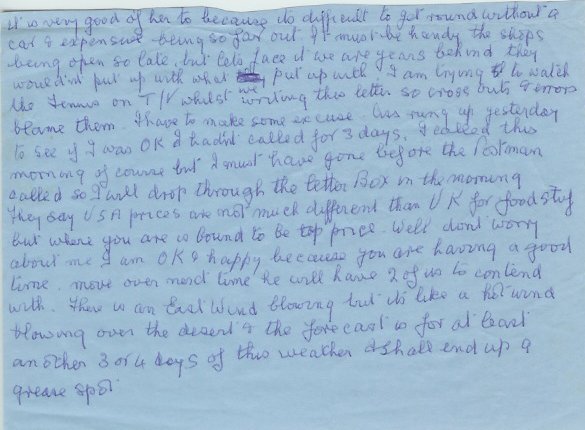 it is very good of her to because its difficult to get round without a
car & expensive being so far out. It must be handy the shops
being open so late, but lets face it we are years behind they
would'nt put up with what we put up with. I am trying to watch
the Tennis on T/V whilst writing this letter so cross outs & errors
blame them. I have to make some excuse. rung up yesterday
to see if I was OK I hadn't called for 3 days, I called this
morning of course but I must have gone before the Postman
called so I will drop through the letter Box in the morning
They say USA prices are not much different than UK for food stuf
but where you are is bound to be top price. Well dont worry
about me I am OK & happy because you are having a good
time. move over next time he will have 2 of us to contend
with. There is an East Wind blowing but its like a hot wind
blowing over the desert & the forecast is for at least
another 3 or 4 days of this weather I shall end up a
grease spot.